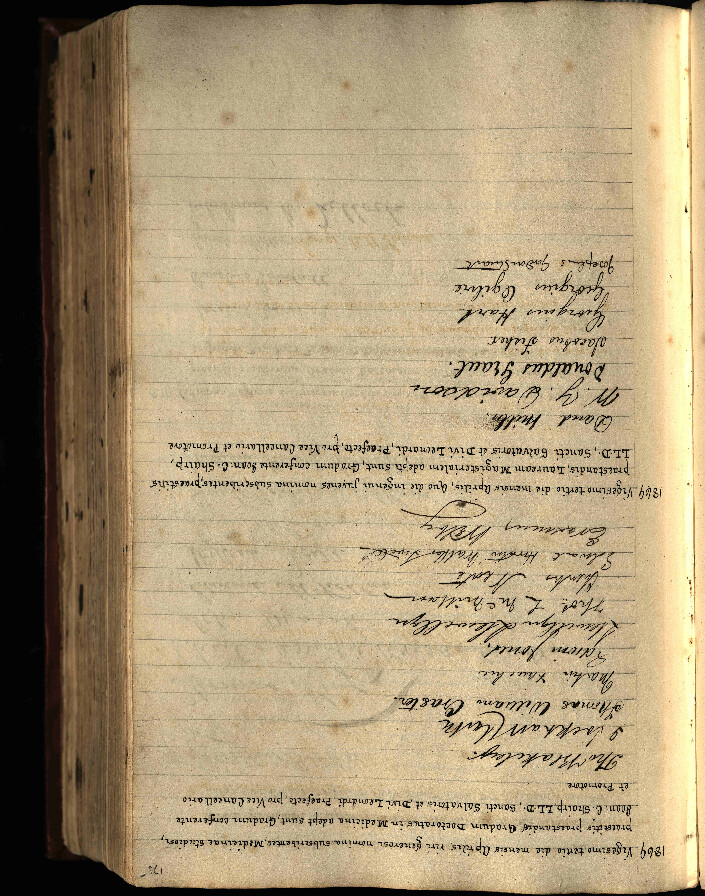 1864 Vigesimo tertio die mensis Aprilis viri generosi nomina subscribentes, Medicinae studiosi,
praestitis praestandis, Gradum Doctoratus in Medicina adepti sunt, Gradum conferente
Joan. C. Shairp LL.D., Sancti Salvatoris et Divi Leonardi Praefecto, pro Vice Cancellario
et Promotore
Tho Blakeley
Thomas William Craster
Martin
Edwin Jones.
Llewellyn Llewellyn
Thos. L McMillan
Edward Horatio Walker
Erasmus
1864 Vigesimo tertio die mensis Aprilis, Quo die ingenui juvenes nomina subscribentes, praestitis
praestandis, Lauream Magisterialem adepti sunt, Gradum conferente Joan. C. Shairp,
LL.D., Sancti Salvatoris et Divi Leonardi, Praefecto, pro Vice Cancellario et Promotore
David Miller.
W. Y. Davidson
Donaldus Grant.
Jacobus Fisher
Georgius Hart
Georgius Ogilvie
Josephus Gordon Stuart